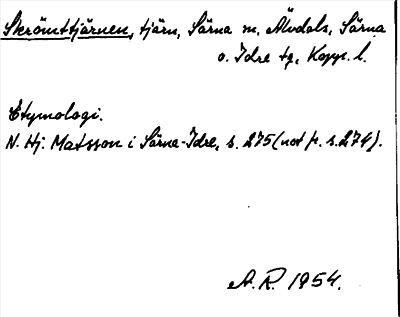 Skrömttjärnen, tjärn, Särna m. Älvdals, Särna
o. Idre tg, Kopp. l.
Etymologi.
N. Hj. Matsson i Särna-Idre, s. 275 (not fr. s. 274).
A. R. 1954.